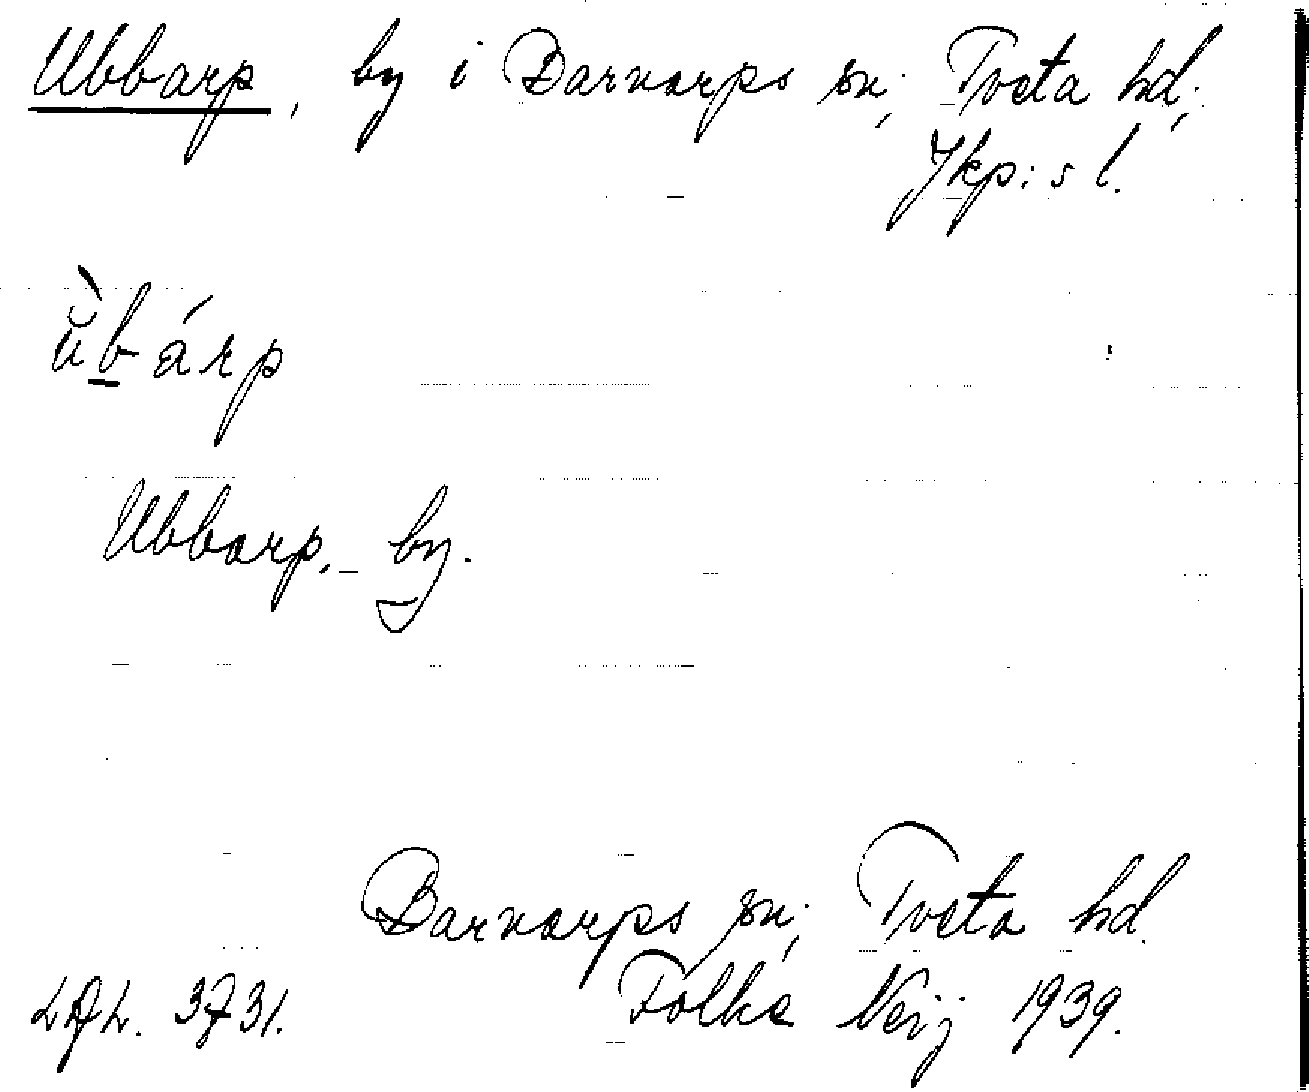 Ubbarp, by i Barnarps sn; Tveta hd;
Jkp:s l.
ùb̲árp
Ubbarp, by.
Barnarps sn; Tveta hd.
Folke Neij 1939.